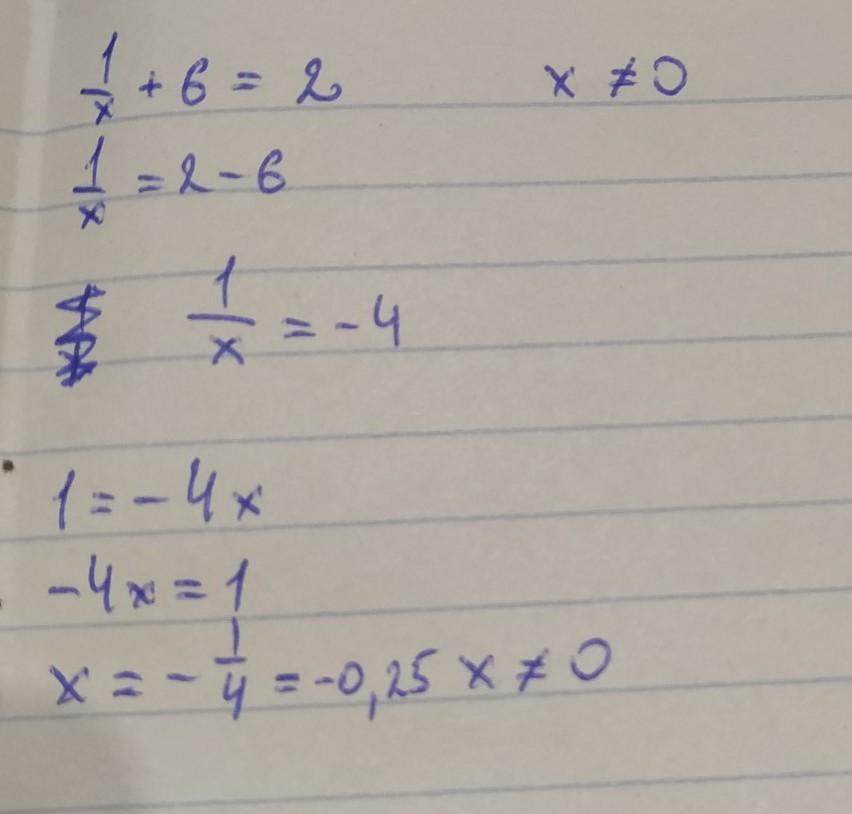 1/x + 6 = 2 x ≠ 0
1/x = 2 - 6
1/x = -4
1 = -4x
-4x = 1
x = -1/4 = -0,25 x ≠ 0